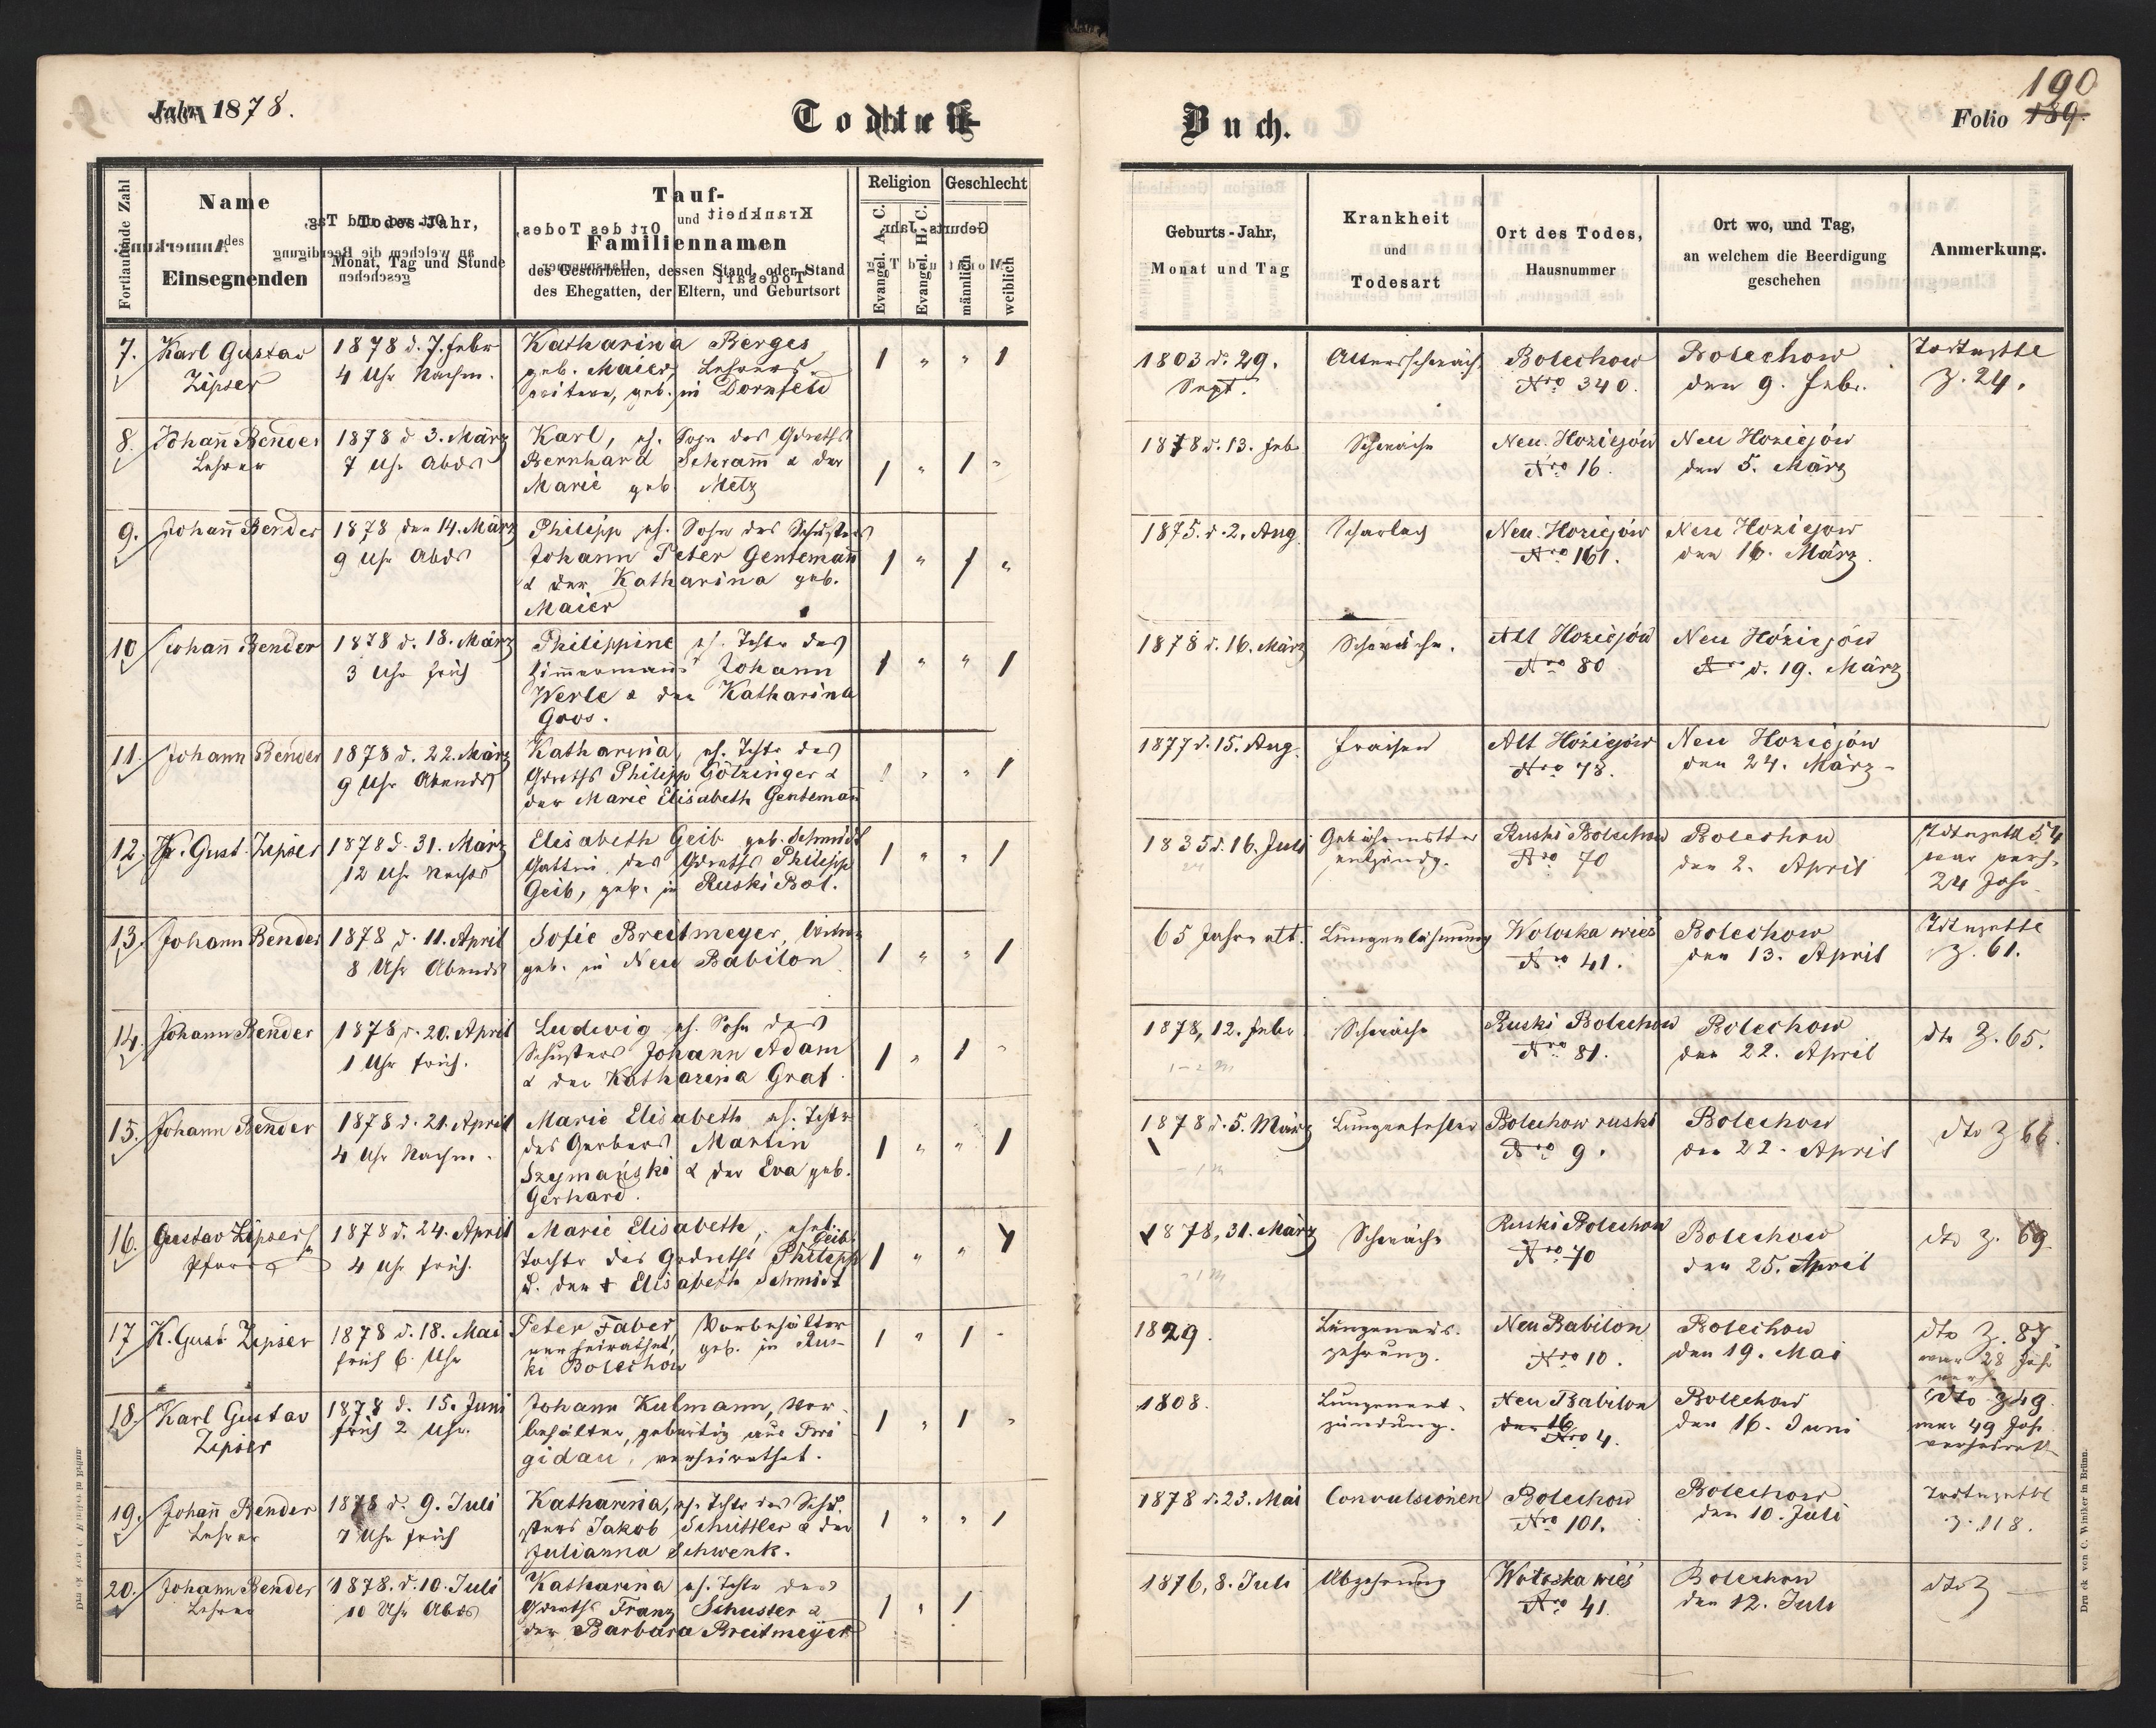 Jahr 1878.
Todten-
Buch.
190
Folio 189.
Fortlaufende Zahl
Name
des
Einsegnenden
Todes-Jahr,
Monat, Tag und Stunde
Tauf-
und
Familiennamen
des Gestorbenen, dessen Stand, oder Stand
des Ehegatten, der Eltern, und Geburtsort
Religion
Evangel. A. C.
Evangel. H. C.
Geschlecht
männlich
weiblich
Geburts-Jahr,
Monat und Tag
Krankheit
und
Todesart
Ort des Todes,
Hausnummer
Ort wo, und Tag,
an welchem die Beerdigung
geschehen
Anmerkung.
7. Karl Gustav
Zipser
1878 d. 7. Febr
4 Uhr Nachm.
Katharina Berges
geb. Maier, Lehrers-
geb. in Dornfeld
1 " " 1
1803 d. 29.
Sept.
Altersschwäch
Bolechow
Nro 340.
Bolechow
den 9. Febr.
Z. 24.
8. Johañ Bender
Lehrer
1878 d 3. März
7 Uhr Abds
Karl, eh. Sohn des Gdreths
Bernhard Schram̄ & der
Marie geb. Metz
1 " 1 "
1878 d. 13. Feb.
Schwäche
Neu Hoziejów
Nro 16.
Neu Hoziejów
den 5. März
9. Johañ Bender
1878 den 14. März
9 Uhr Abds
Philipp eh. Sohn des Schusters
Johann Peter Gentemañ
& der Katharina geb.
Maier
1 " 1 "
1875. d. 2. Aug.
Scharlach
Neu Hoziejów
Nro 161.
Neu Hoziejow
den 16. März.
10 Johañ Bender
1878 d. 18. März
3 Uhr früh
Philippine eh. Tochter des
Zimmermanns Johann
Werle & der Katharina
Groos.
1 " " 1
1878 d. 16. März
Schwäche.
Alt Hoziejów
Nro 80
Neu Hoziejów
d. 19. März
11. Johann Bender
1878 d. 22. März
9 Uhr Abends
Katharina, eh. Tochter des
Gdreths Philipp Götzinger &
der Marie Elisabeth Gentemañ
1 " " 1
1877 d. 15. Aug.
Fraisen
Alt Hoziejów
Nro 78.
Neu Hoziejów
den 24. März -
12. K. Gust. Zipser
1878 d. 31. März
12 Uhr Nachts
Elisabeth Geib geb. Schmidt
Gattin des Gdreths Philipp
Geib, geb. in Ruski Bol.
1 " " 1
1835 d. 16. Juli
Gebährmutter
entzündg.
Ruski Bolechow
Nro 70
Bolechow
den 2. April
54
war verh.
24 Jahr
13. Johann Bender
1878 d. 11. April
8 Uhr Abends
Sofie Breitmeyer, Witwe
geb. in Neu Babilon
1 " " 1
65 Jahre alt.
Lungenlähmung
Woloska wieś
Nro 41.
Bolechow
den 13. April
Z. 61.
14. Johann Bender
1878 d. 20. April
1 Uhr früh.
Ludwig eh. Sohn des
Schusters Johann Adam
& der Katharina Graf
1 " 1 "
1878, 12. Febr
Schwäche
Ruski Bolechow
Nro 81.
Bolechow
den 22. April
dto Z. 65.
15. Johann Bender
1878 d. 21. April
4 Uhr Nachm.
Marie Elisabeth eh. Tochter
des Gerbers Martin
Szymański & der Eva geb.
Gerhard.
1 " " 1
1878 d. 5. März
Lungenfehler
Bolechow ruski
Nro 9.
Bolechow
den 22. April
dto Z 66.
16. Gustav Zipser
Pfarrer
1878 d. 24. April
4 Uhr früh.
Marie Elisabeth, ehel.
Geib
Tochter des Gdreths Philipp
d. der † Elisabeth Schmidt
1 " " 1
1878, 31. März
Schwäche
Ruski Bolechow
Nro 70
Bolechow
den 25. April
dto Z. 69.
17 K. Gust. Zipser
1878 d. 18. Mai
früh 6. Uhr
Peter Faber, Vorbehälter
verheirathet, geb. in Rus-
ki Bolechow
1 " 1 "
1829.
Lungenaus-
zehrung.
Neu Babilon
Nro 10.
Bolechow
den 19. Mai
dto Z. 87
war 28 Jahr
verh.
18. Karl Gustav
Zipser
1878 d. 15. Juni
früh 2 Uhr.
Johann Kulmann, Vor-
behälter, gebürtig aus Bri-
gidau, verheirathet.
1 " 1 "
1808.
Lungenent-
zündung.
Neu Babilon
den 16
Nro 4.
Bolechow
den 16. Juni
dto
war 49 Jahr
verheirath
19. Johañ Bender
Lehrer
1878 d. 9. Juli
7 Uhr früh
Katharina, eh. Tochter des Schu-
sters Jakob Schüttler & der
Julianna Schwenk.
1 " " 1
1878 d. 23. Mai
Convulsionen
Bolechow
Nro 101.
Bolechow
den 10. Juli
Z. 118.
20. Johann Bender
Lehrer
1878. d. 10. Juli
10 Uhr Abds
Katharina eh. Tochter des
Gdreths Franz Schuster &
der Barbara Breitmeyer
1 " 1
1876, 8. Juli
Abzehrung
Woloska wieś
Nro 41.
Bolechow
den 12. Juli
dto Z —
Druck von C. Winiker in Brünn.